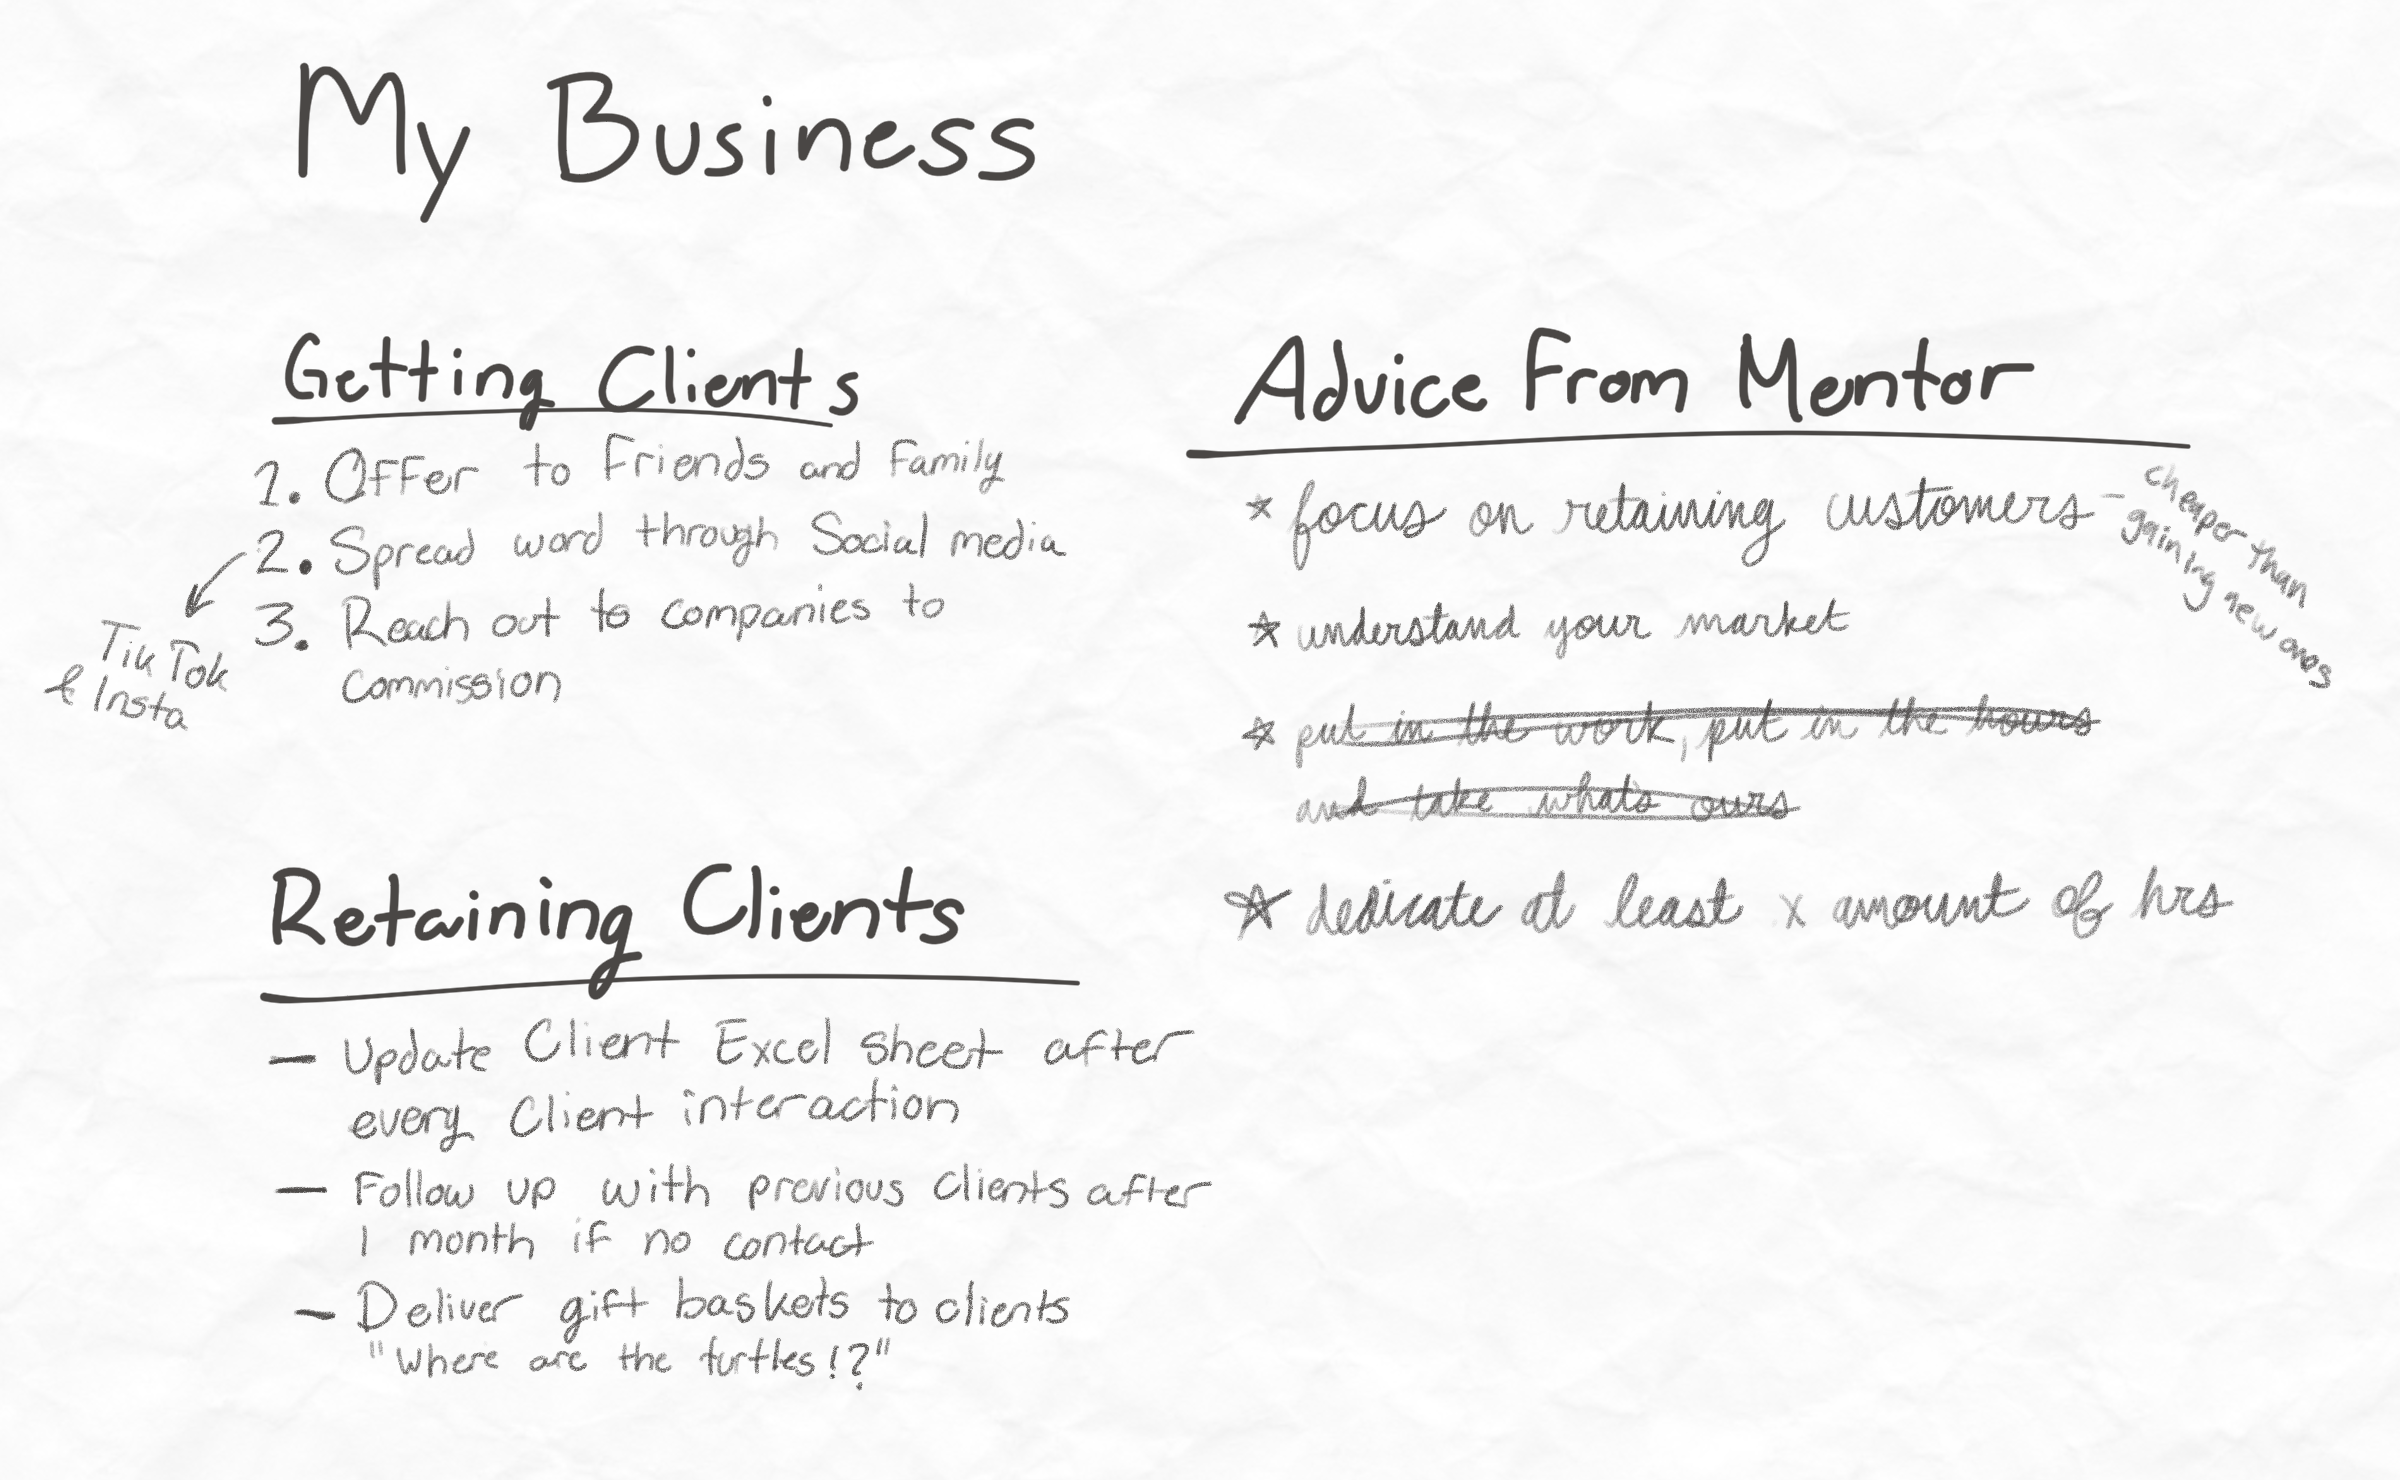 My Business
Getting Clients
1. Offer to Friends and Family
2. Spread word through Social media
3. Reach out to companies to
commission
Tik Tok
& Insta
Retaining Clients
- Update Client Excel sheet after
every Client interaction
- Follow up with previous clients after
1 month if no contact
- Deliver gift baskets to clients
"Where are the turtles!?"
Advice From Mentor
* focus on retaining customers -
cheaper than
gaining new ones
* understand your market
* put in the work, put in the hours
and take what's ours
* dedicate at least x amount of hrs